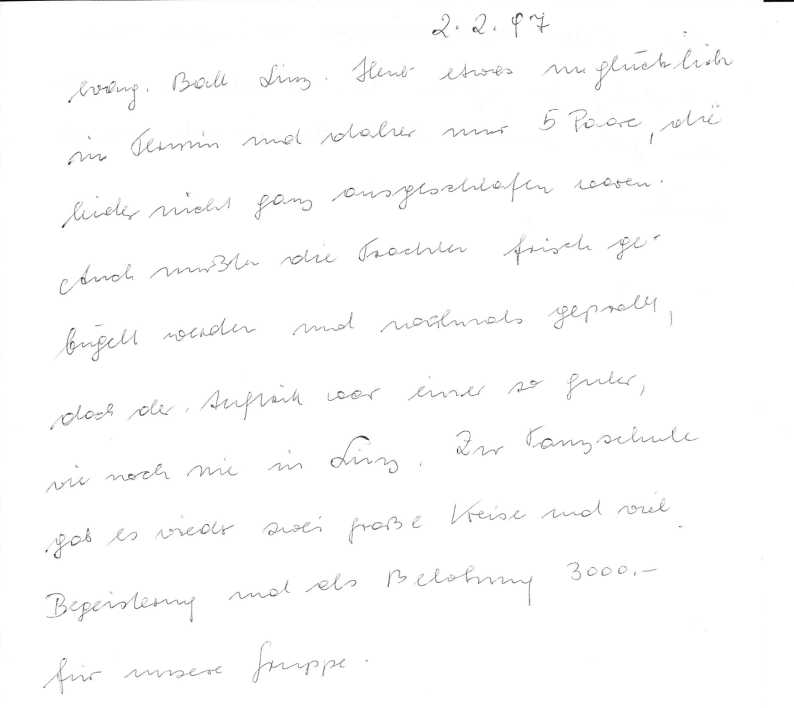 2. 2. 97
evang. Ball Linz. Heuer etwas unglücklich
im Termin und daher nur 5 Paare, die
leider nicht ganz ausgeschlafen waren.
Auch mußten die Trachten frisch ge-
bügelt werden und nochmals geprobt,
doch der Auftritt war einer so guter,
wie noch nie in Linz. Zur Tanzschule
gab es wieder zwei große Kreise und viel
Begeisterung und als Belohnung 3000.-
für unsere Gruppe.